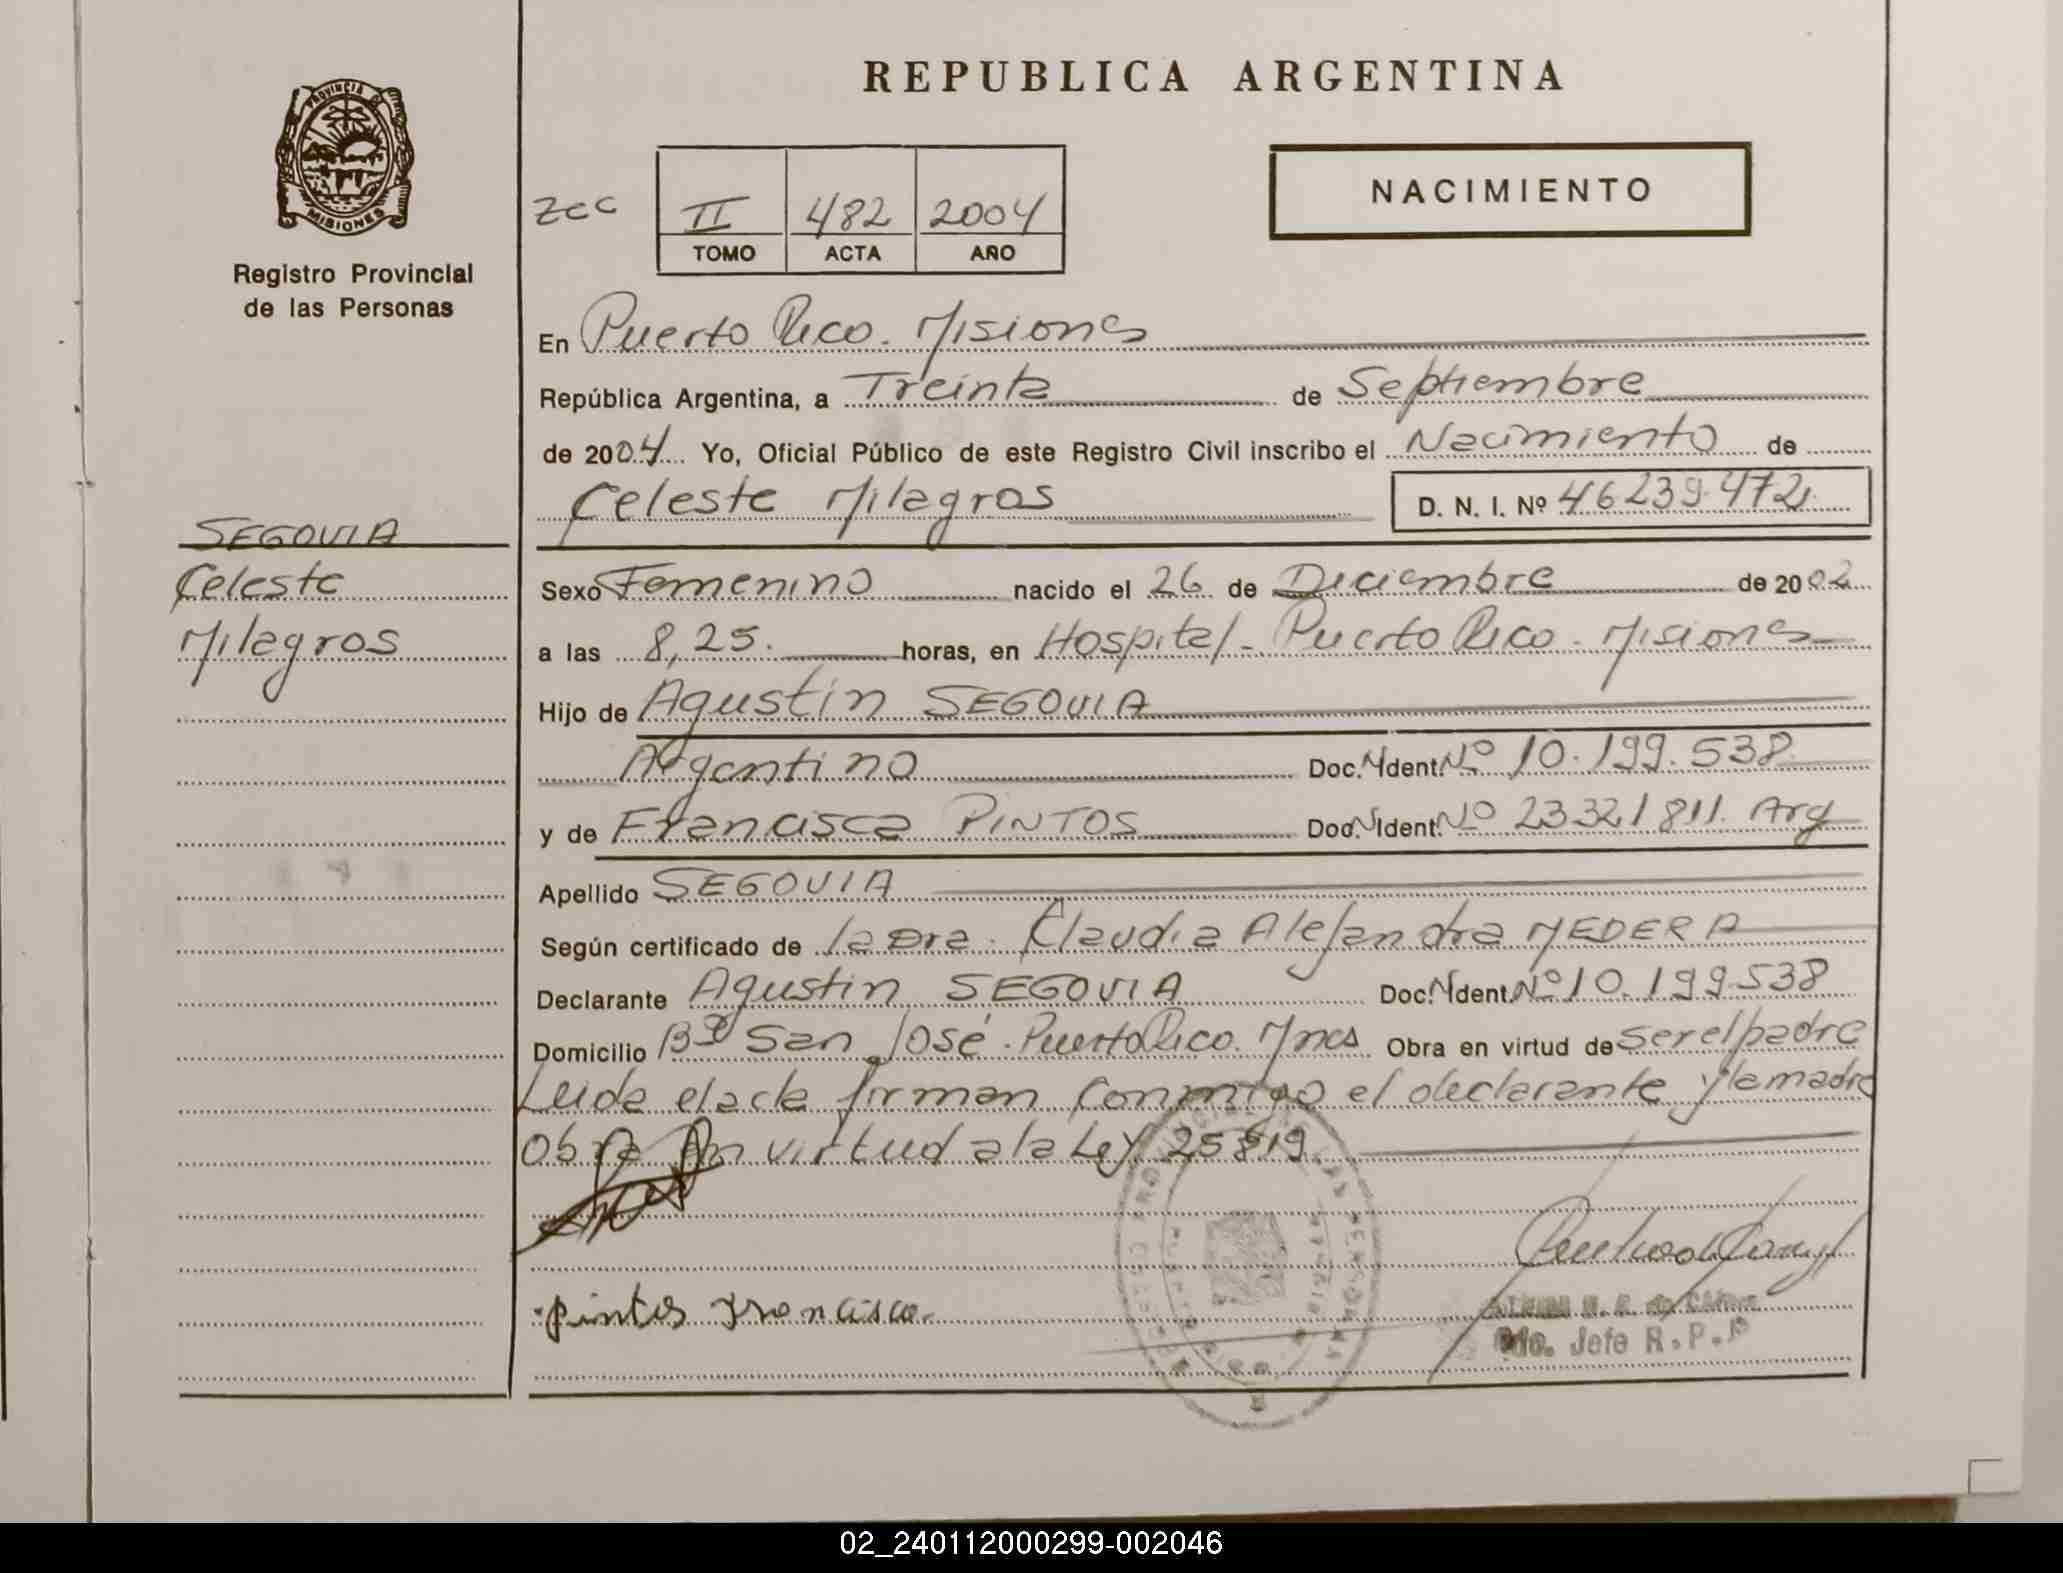 REPUBLICA ARGENTINA
PROVINCIA DE
MISIONES
Registro Provincial
de las Personas
SEGOVIA
Celeste
Milagros
zcc II 482 2004
TOMO ACTA AÑO
NACIMIENTO
En Puerto Rico. Misiones
República Argentina, a Treinta de Septiembre
de 2004 Yo, Oficial Público de este Registro Civil inscribo el Nacimiento de
Celeste Milagros D. N. I. Nº 46239.472
Sexo Femenino nacido el 26 de Diciembre de 2002
a las 8,25. horas, en Hospital - Puerto Rico - Misiones
Hijo de Agustin SEGOVIA
Argentino Doc. Ident. Nº 10.199.538
y de Francisca PINTOS Doc. Ident. Nº 23321811. Arg
Apellido SEGOVIA
Según certificado de la Dra. Claudia Alejandra MEDERA
Declarante Agustin SEGOVIA Doc. Ident. Nº 10.199538
Domicilio Bº San José - Puerto Rico. Mnes Obra en virtud de ser el padre
Leida el acta firman conmigo el declarante y la madre
Obra en virtud a la Ley 25819.
pintos Francisca.
Jefe R.P.P
02_240112000299-002046